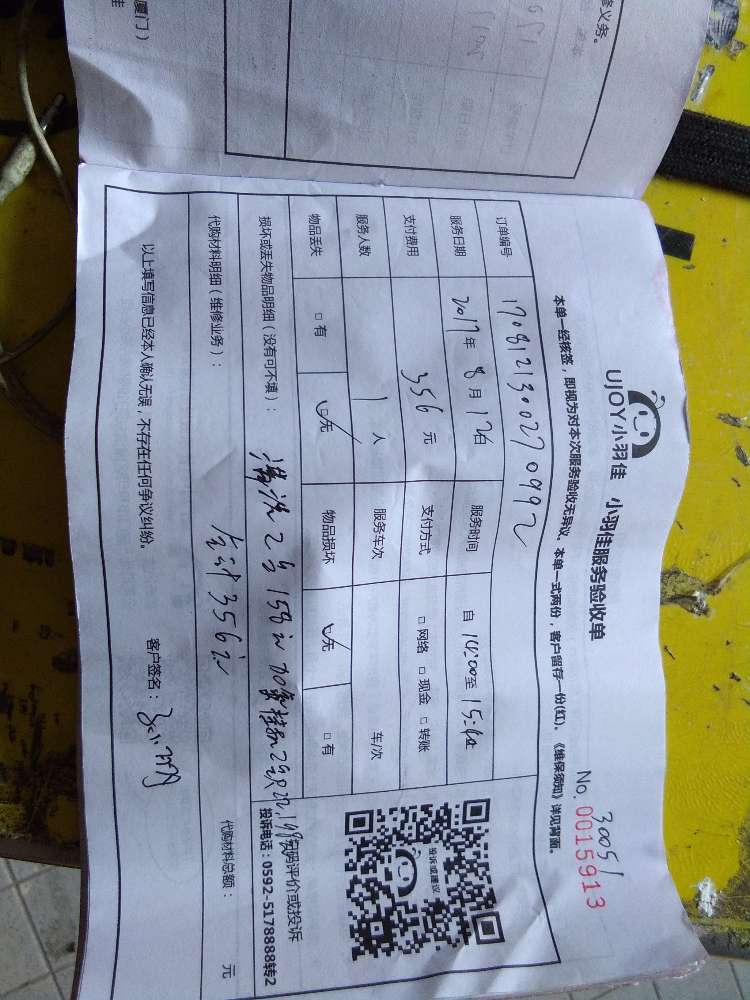 修义务。
厦门）
佳
UJOY小羽佳 小羽佳服务验收单
30051
No. 0015913
本单一经核签，即视为对本次服务验收无异议、本单一式两份，客户留存一份(红)。《维保须知》详见背面。
订单编号 170812130270992
服务日期 2017年8月12日 服务时间 自14:00至15:40
支付费用 356元 支付方式 □网络 □现金 □转账
服务人数 1人 服务车次 车/次
物品丢失 □有 ☑无 物品损坏 ☑无 □有
损坏或丢失物品明细（没有可不填）： 清洗2台158元 加氟挂机2台 198元
投诉或建议
扫码评价或投诉
投诉电话：0592-5178888转2
代购材料明细（维修业务）： 合计356元 代购材料总额： 元
以上填写信息已经本人确认无误，不存在任何争议纠纷。 客户签名：